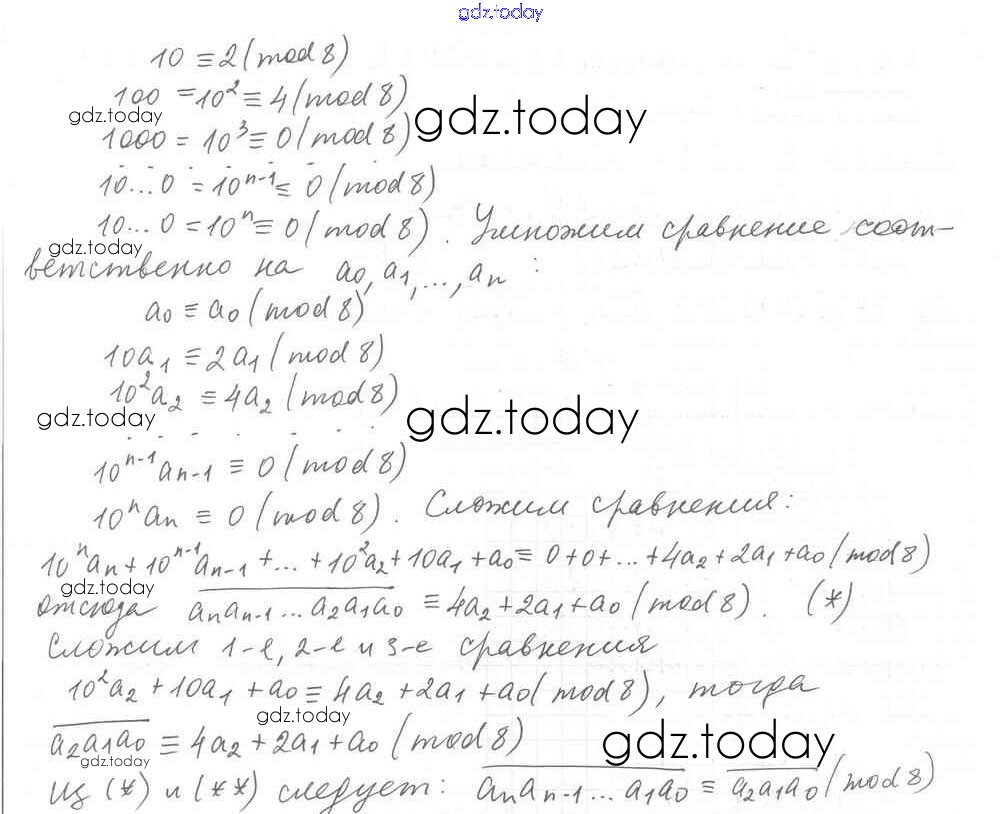 gdz.today
10 ≡ 2 (mod 8)
100 = 10² ≡ 4 (mod 8)
gdz.today
gdz.today
1000 = 10³ ≡ 0 (mod 8)
10...0 = 10ⁿ⁻¹ ≡ 0 (mod 8)
10...0 = 10ⁿ ≡ 0 (mod 8). Умножим сравнение соот-
gdz.today
ветственно на a₀, a₁, ..., aₙ:
a₀ ≡ a₀ (mod 8)
10a₁ ≡ 2a₁ (mod 8)
10²a₂ ≡ 4a₂ (mod 8)
gdz.today
gdz.today
10ⁿ⁻¹aₙ₋₁ ≡ 0 (mod 8)
10ⁿaₙ ≡ 0 (mod 8). Сложим сравнения:
10ⁿaₙ + 10ⁿ⁻¹aₙ₋₁ + ... + 10²a₂ + 10a₁ + a₀ ≡ 0 + 0 + ... + 4a₂ + 2a₁ + a₀ (mod 8)
gdz.today
отсюда a̅ₙa̅ₙ₋₁...a̅₂a̅₁a̅₀ ≡ 4a₂ + 2a₁ + a₀ (mod 8). (*)
Сложим 1-е, 2-е и 3-е сравнения
10²a₂ + 10a₁ + a₀ ≡ 4a₂ + 2a₁ + a₀ (mod 8), тогда
gdz.today
a̅₂a̅₁a̅₀ ≡ 4a₂ + 2a₁ + a₀ (mod 8)
gdz.today
gdz.today
Из (*) и (**) следует: a̅ₙa̅ₙ₋₁...a̅₁a̅₀ ≡ a̅₂a̅₁a̅₀ (mod 8)